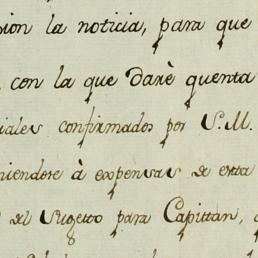 sion la noticia, para que
con la que darè quenta
iales confirmados por S.M.
niendose à expensas de esta
del Sugetto para Capittan,